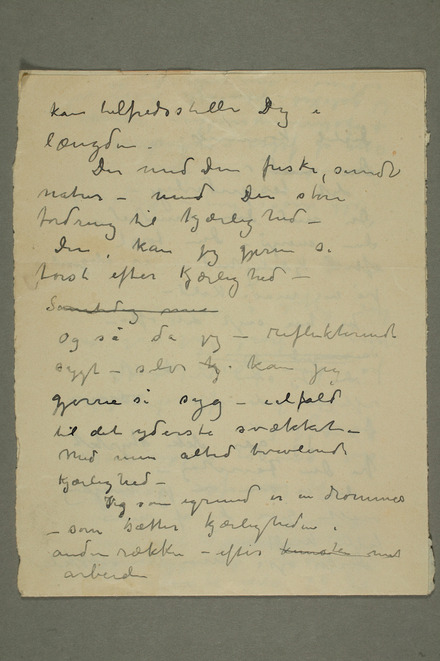 kan tilfredsstille Dig i
længden.
Du med Den friske, sunde
natur – med Den store
fordring til Kjærlighed –
Du, kan jeg gjerne si
tørst efter Kjærlighed –
Samtidig
og så da jeg – reflekterende
sygt – selv kan jeg
gjerne si syg – ialfald
til det yderste svækket –
Med min altid tvivlende
Kjærlighed –
Jeg som igrund er en drømmer
– som sætter Kjærligheden i
anden række – efter kunsten mit
arbeide